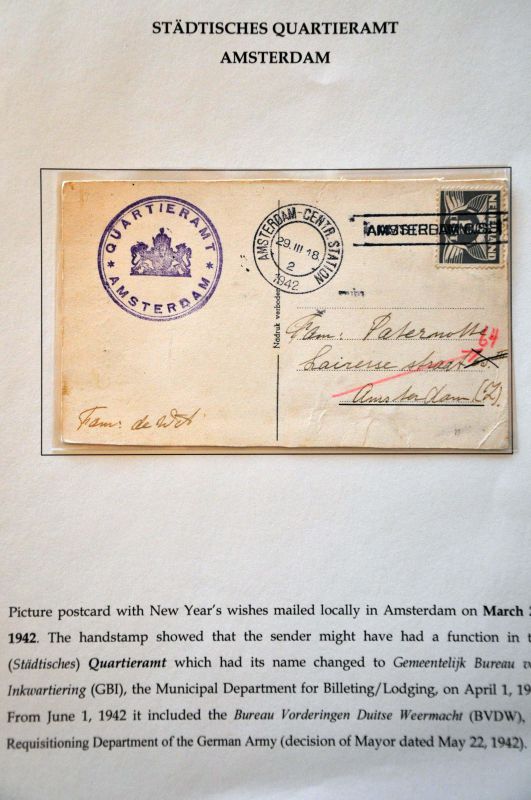 STÄDTISCHES QUARTIERAMT
AMSTERDAM
QUARTIERAMT
* AMSTERDAM *
AMSTERDAM-CENTR. STATION
29.III 18
2
1942
AMSTERDAM
NEDERLAND
Nadruk verboden
Fam: Paternotte
64
Lairesse straat
Amsterdam (Z).
Fam: de Wit
Picture postcard with New Year's wishes mailed locally in Amsterdam on March
1942. The handstamp showed that the sender might have had a function in
(Städtisches) Quartieramt which had its name changed to Gemeentelijk Bureau
Inkwartiering (GBI), the Municipal Department for Billeting/Lodging, on April 1,
From June 1, 1942 it included the Bureau Vorderingen Duitse Weermacht (BVDW),
Requisitioning Department of the German Army (decision of Mayor dated May 22, 1942).